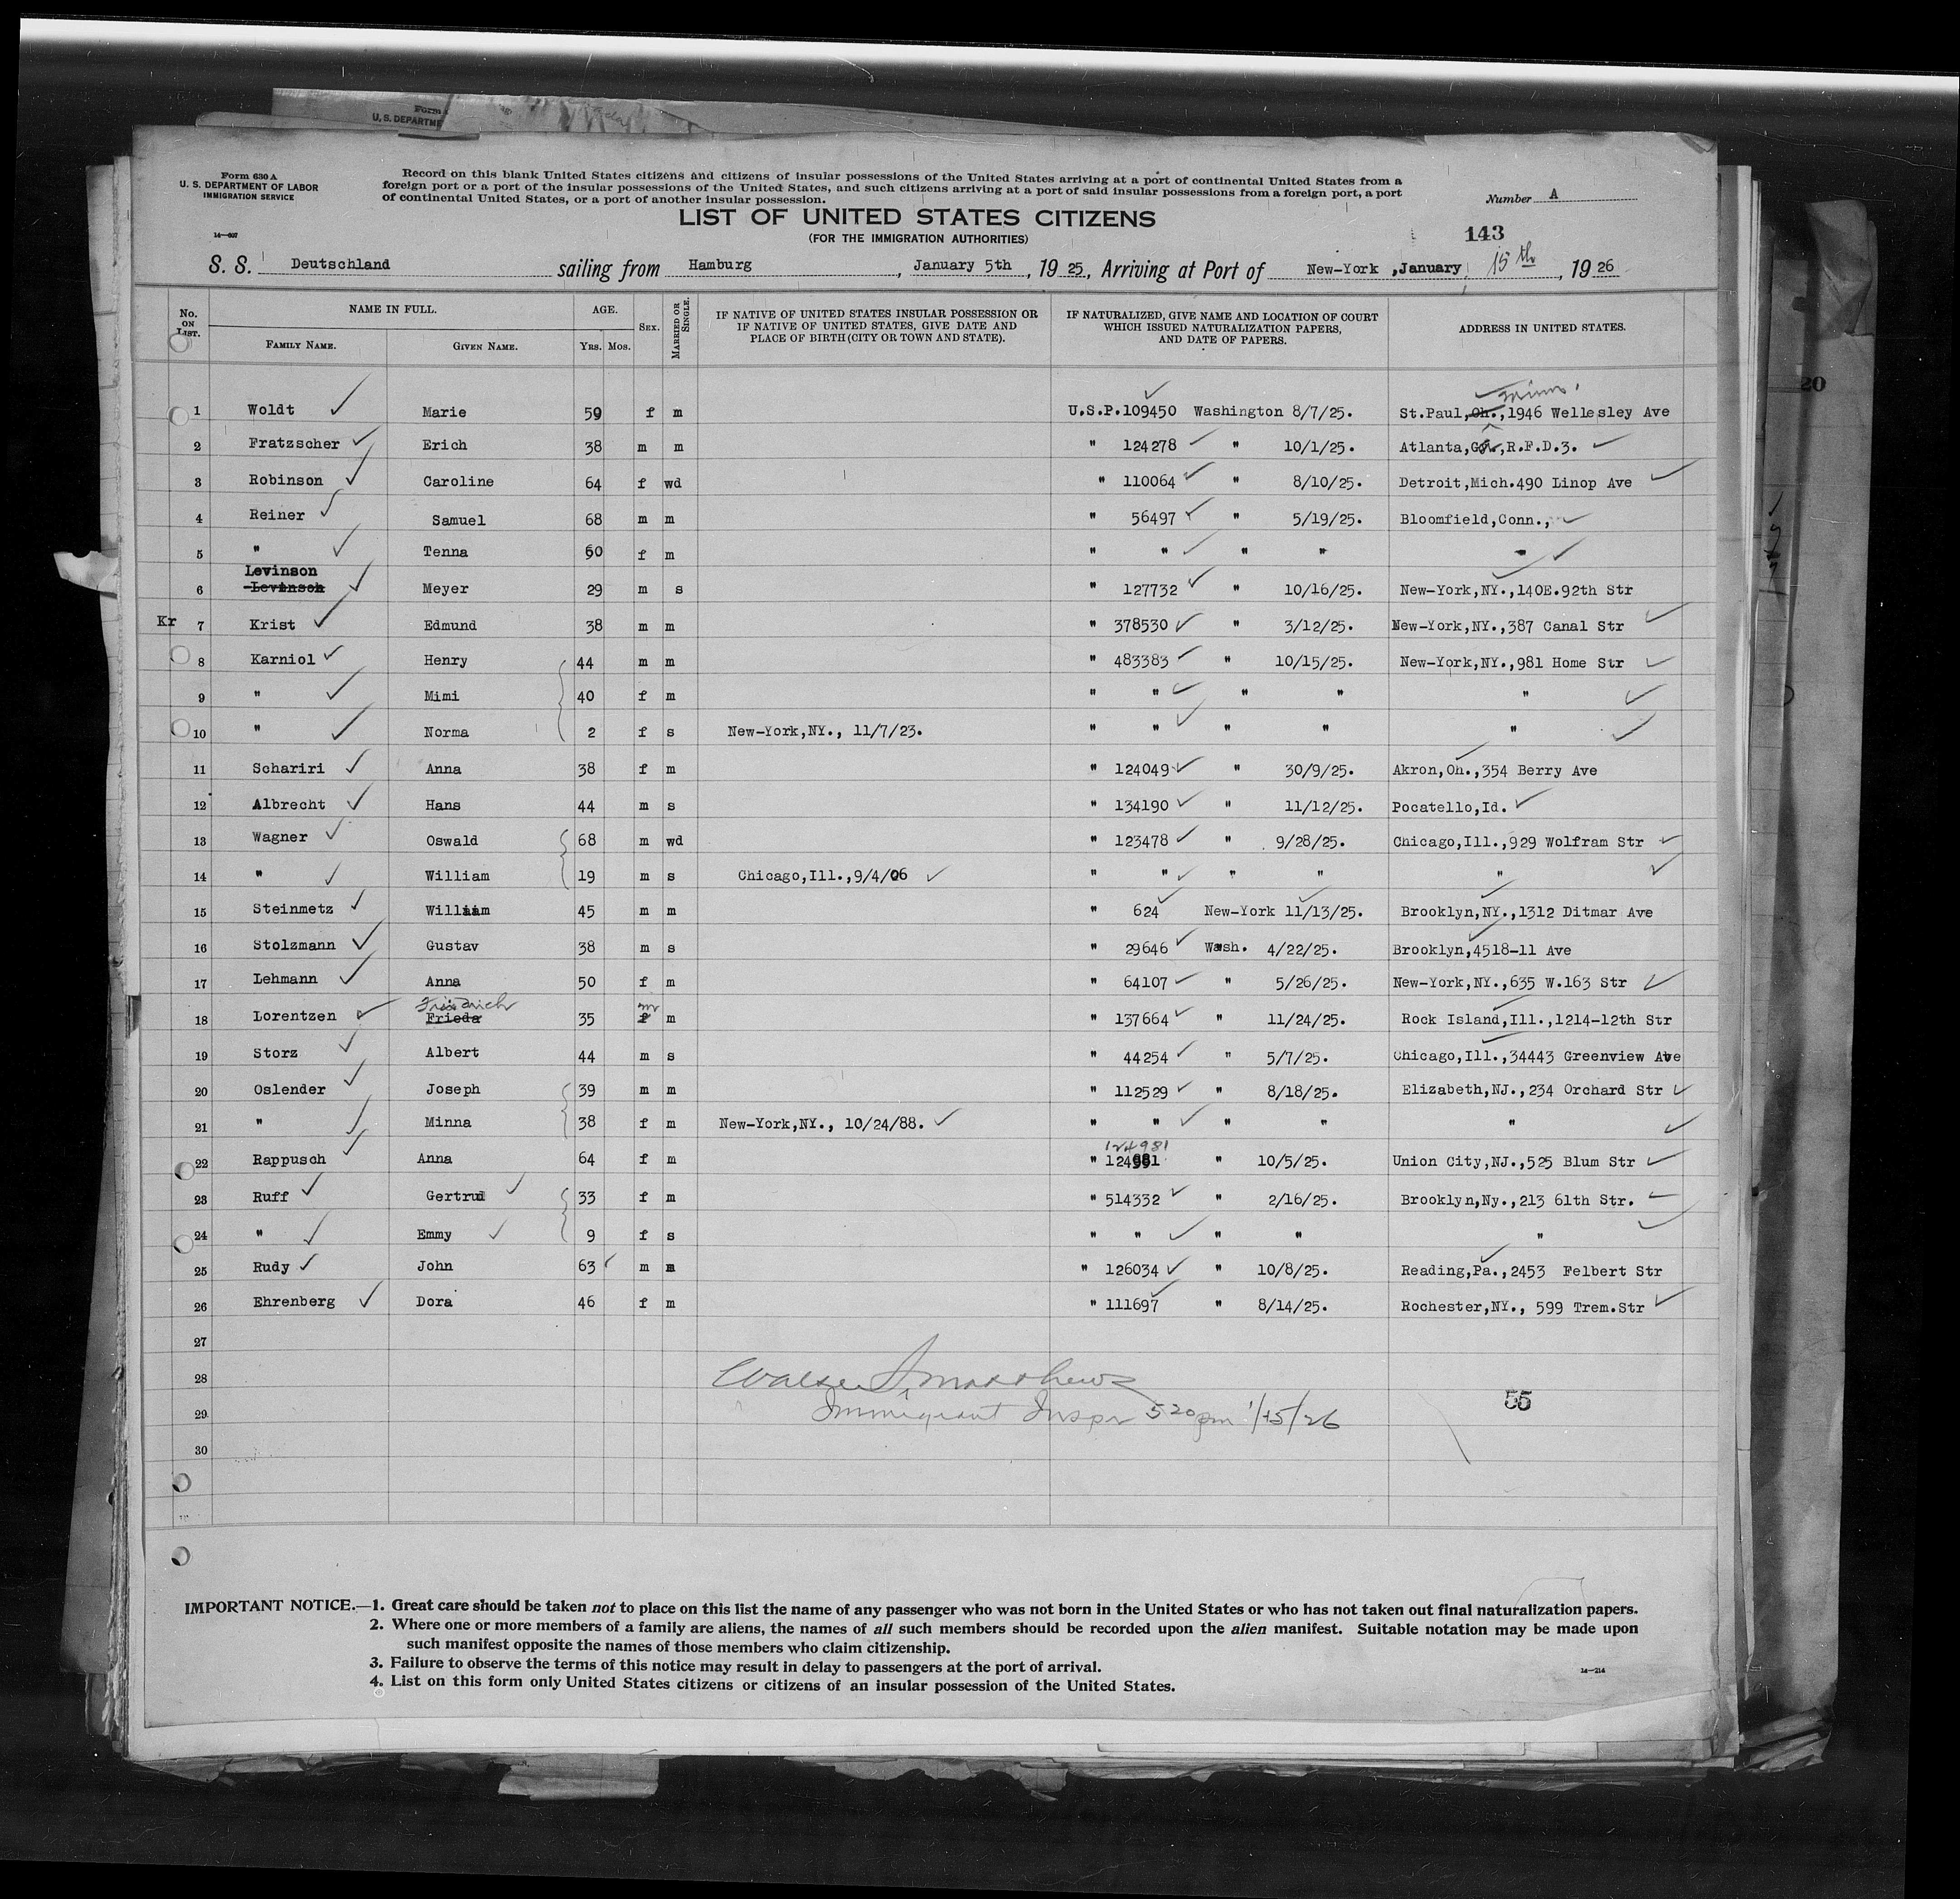 Form
U. S. DEPARTME
20
Form 630 A
U. S. DEPARTMENT OF LABOR
IMMIGRATION SERVICE
14—607
Record on this blank United States citizens and citizens of insular possessions of the United States arriving at a port of continental United States from a
foreign port or a port of the insular possessions of the United States, and such citizens arriving at a port of said insular possessions from a foreign port, a port
of continental United States, or a port of another insular possession.
Number A
LIST OF UNITED STATES CITIZENS
(FOR THE IMMIGRATION AUTHORITIES)
143
S. S. Deutschland sailing from Hamburg, January 5th, 1925, Arriving at Port of New-York, January 15th, 1926
No. ON LIST. NAME IN FULL. FAMILY NAME. GIVEN NAME. AGE. YRS. MOS. SEX. MARRIED OR SINGLE. IF NATIVE OF UNITED STATES INSULAR POSSESSION OR IF NATIVE OF UNITED STATES, GIVE DATE AND PLACE OF BIRTH (CITY OR TOWN AND STATE). IF NATURALIZED, GIVE NAME AND LOCATION OF COURT WHICH ISSUED NATURALIZATION PAPERS, AND DATE OF PAPERS. ADDRESS IN UNITED STATES.
1 Woldt Marie 59 f m U.S.P.109450 Washington 8/7/25. St.Paul,Oh.,1946 Wellesley Ave
2 Fratzscher Erich 38 m m " 124278 " 10/1/25. Atlanta,Ga.,R.F.D.3.
3 Robinson Caroline 64 f wd " 110064 " 8/10/25. Detroit,Mich.490 Linop Ave
4 Reiner Samuel 68 m m " 56497 " 5/19/25. Bloomfield,Conn.,
5 " Tenna 60 f m " " " " "
Levinson
6 Levinsoh Meyer 29 m s " 127732 " 10/16/25. New-York,NY.,140E.92th Str
Kr 7 Krist Edmund 38 m m " 378530 " 3/12/25. New-York,NY.,387 Canal Str
8 Karniol Henry 44 m m " 483383 " 10/15/25. New-York,NY.,981 Home Str
9 " Mimi 40 f m " " " " "
10 " Norma 2 f s New-York,NY., 11/7/23. " " " " "
11 Schariri Anna 38 f m " 124049 " 30/9/25. Akron,Oh.,354 Berry Ave
12 Albrecht Hans 44 m s " 134190 " 11/12/25. Pocatello,Id.
13 Wagner Oswald 68 m wd " 123478 " 9/28/25. Chicago,Ill.,929 Wolfram Str
14 " William 19 m s Chicago,Ill.,9/4/06 " " " " "
15 Steinmetz William 45 m m " 624 New-York 11/13/25. Brooklyn,NY.,1312 Ditmar Ave
16 Stolzmann Gustav 38 m s " 29646 Wash. 4/22/25. Brooklyn,4518-11 Ave
17 Lehmann Anna 50 f m " 64107 " 5/26/25. New-York,NY.,635 W.163 Str
Friedrich m
18 Lorentzen Frieda 35 f m " 137664 " 11/24/25. Rock Island,Ill.,1214-12th Str
19 Storz Albert 44 m s " 44254 " 5/7/25. Chicago,Ill.,34443 Greenview Ave
20 Oslender Joseph 39 m m " 112529 " 8/18/25. Elizabeth,NJ.,234 Orchard Str
21 " Minna 38 f m New-York,NY., 10/24/88. " " " " "
124981
22 Rappusch Anna 64 f m " 124981 " 10/5/25. Union City,NJ.,525 Blum Str
23 Ruff Gertrud 33 f m " 514332 " 2/16/25. Brooklyn,Ny.,213 61th Str.
24 " Emmy 9 f s " " " " "
25 Rudy John 63 m m " 126034 " 10/8/25. Reading,Pa.,2453 Felbert Str
26 Ehrenberg Dora 46 f m " 111697 " 8/14/25. Rochester,NY., 599 Trem.Str
27
28 Matthews
29 Immigrant Inspr 5 20 pm 1/15/26 55
30
IMPORTANT NOTICE.—1. Great care should be taken not to place on this list the name of any passenger who was not born in the United States or who has not taken out final naturalization papers.
2. Where one or more members of a family are aliens, the names of all such members should be recorded upon the alien manifest. Suitable notation may be made upon
such manifest opposite the names of those members who claim citizenship.
3. Failure to observe the terms of this notice may result in delay to passengers at the port of arrival.
4. List on this form only United States citizens or citizens of an insular possession of the United States.
14—214